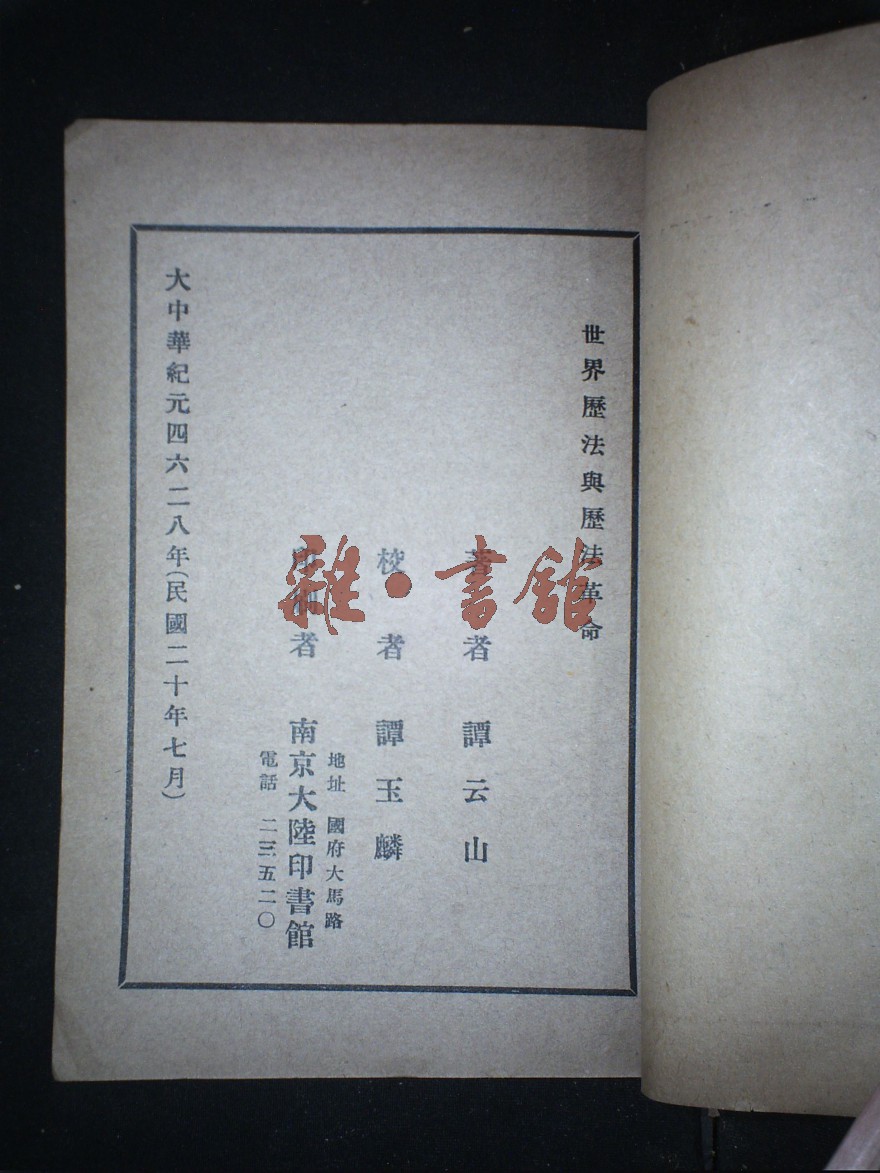 世界歷法與歷法革命
著者 譚云山
校者 譚玉麟
地址 國府大馬路
印刷者 南京大陸印書館
電話 二三五二〇
大中華紀元四六二八年(民國二十年七月)
雜·書館